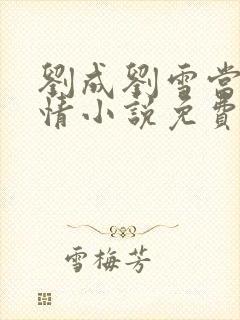 劉成劉雪當
情小說免費
雪梅芳